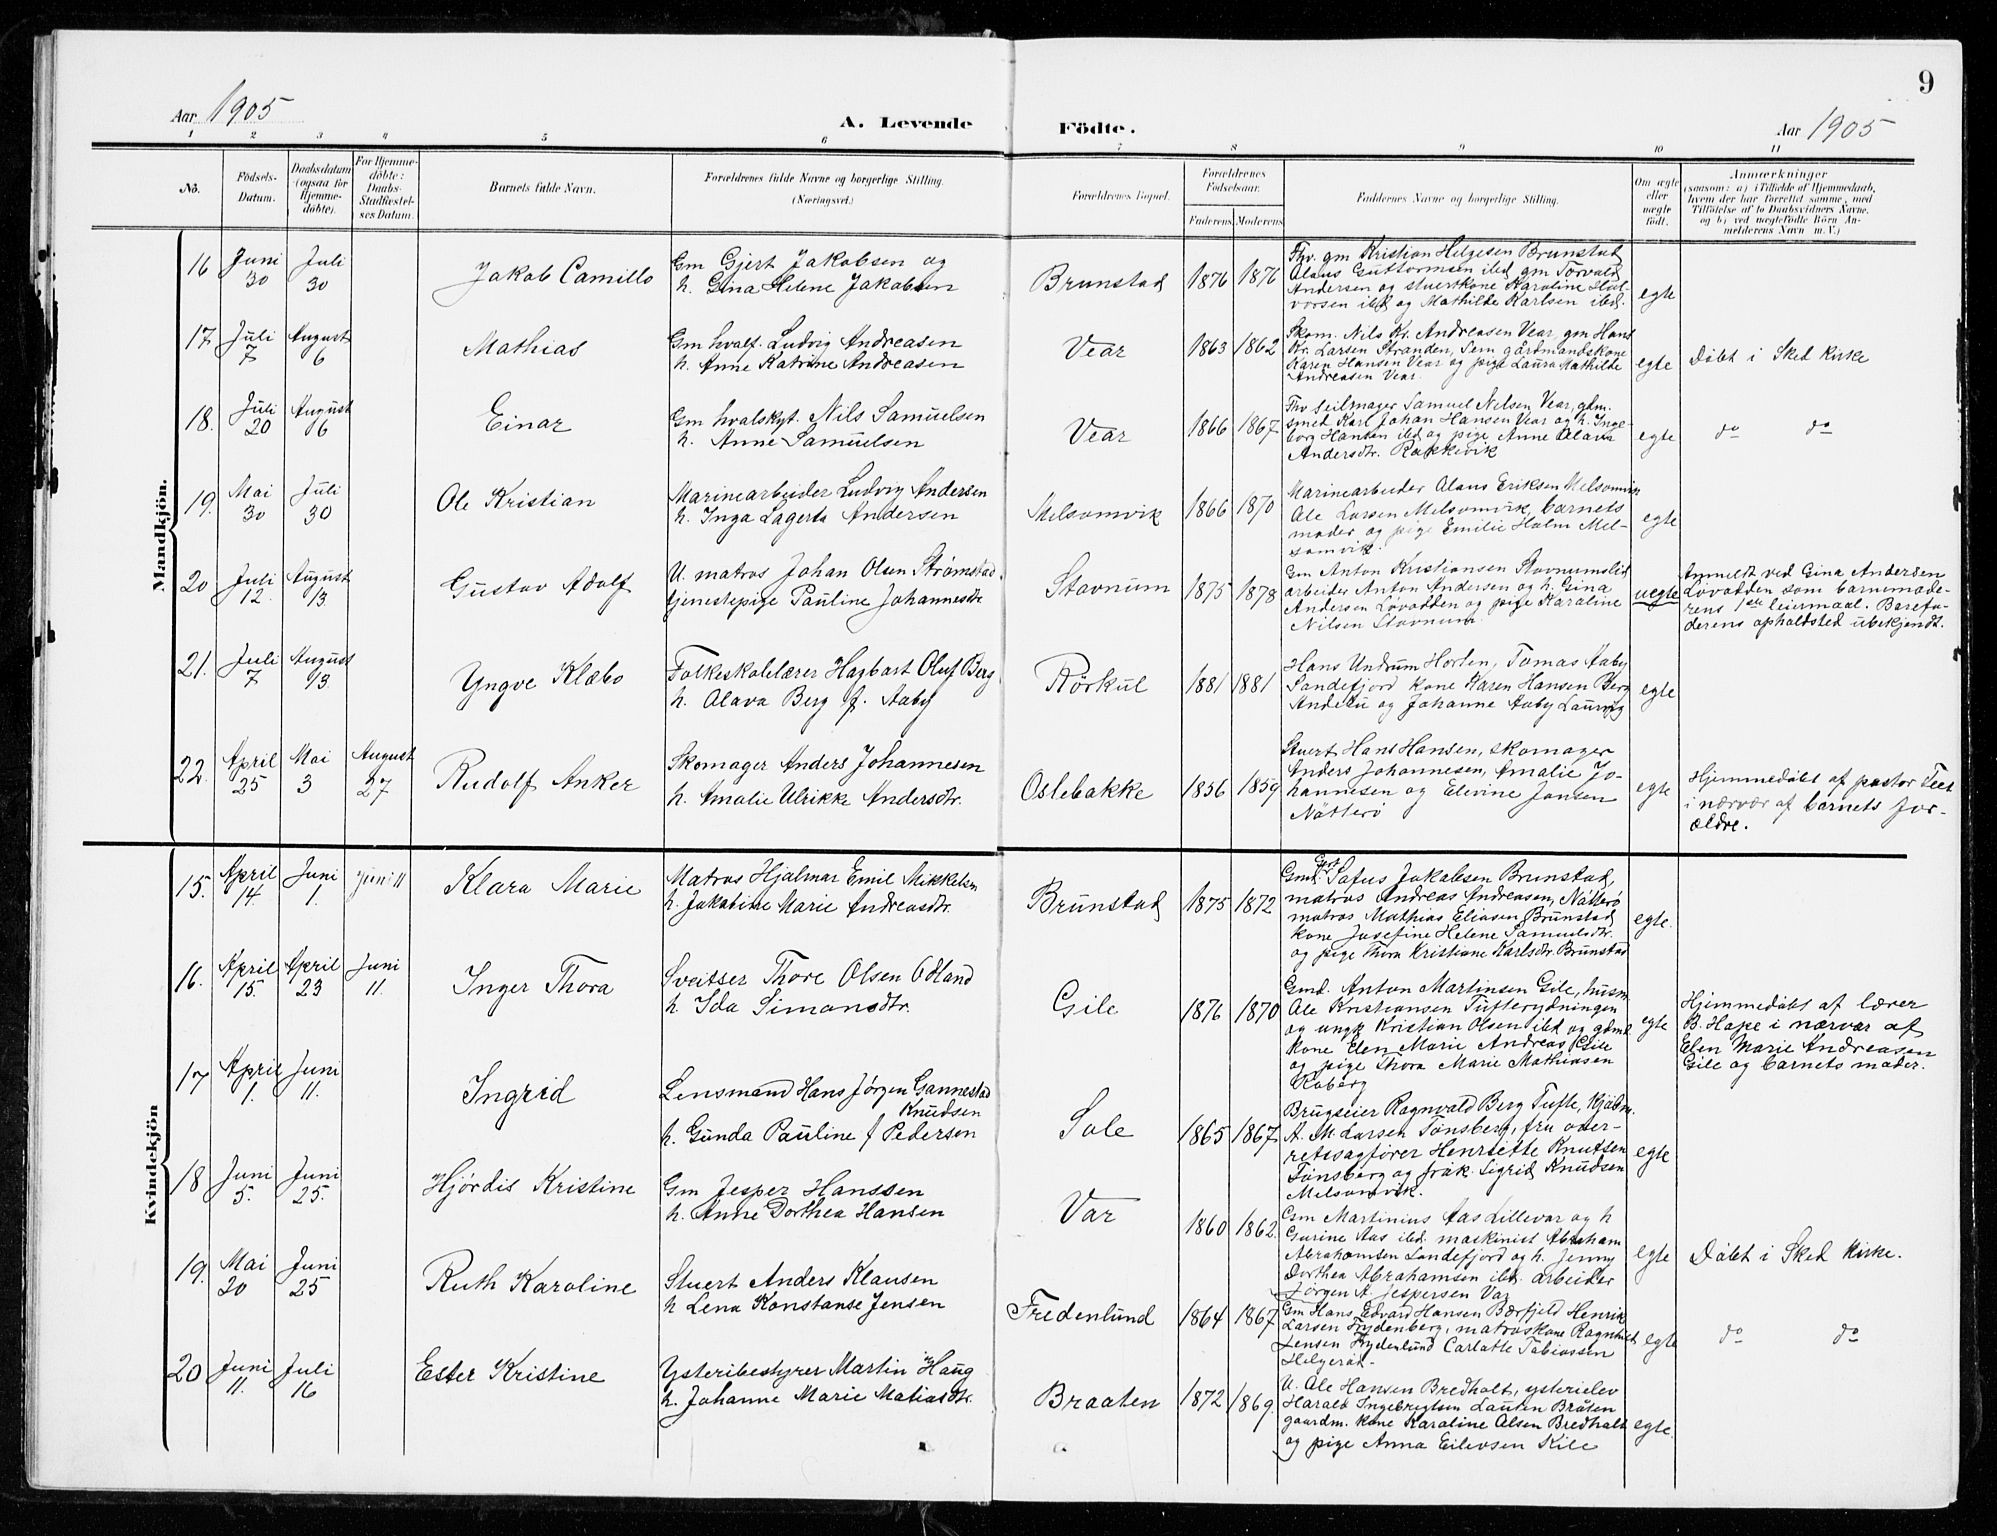 9
Aar 1905
A. Levende Födte.
Aar 1905
1 2 3 4 5 6 7 8 9 10 11
No.
Födsels-
Datum.
Daabsdatum
(ogsaa for
Hjemme-
döbte).
For Hjemme-
döbte:
Daabs-
Stadfæstel-
ses Datum.
Barnets fulde Navn.
Forældrenes fulde Navne og borgerlige Stilling.
(Næringsvei.)
Forældrenes Bopæl.
Forældrenes
Födselsaar.
Faderens
Moderens
Faddernes Navne og borgerlige Stilling.
Om ægte
eller
uægte
födt.
Anmærkninger
(saasom: a) i Tilfælde af Hjemmedaab,
hvem der har forrettet samme, med
Tilföielse af to Daabsvidners Navne,
og b) ved uægtefödte Börn An-
melderens Navn m. V.)
Mandkjön.
16 Juni 30 Juli 30
Jakob Camillo
Gm Gjert Jakobsen og
h. Gina Helene Jakobsen
Brunstad
1876 1876
Fhv. gm Kristian Helgesen Brunstad
Olaus Guttormsen ibd, gm Torvald
Andersen og stuertkone Karoline Hal-
vorsen ibd og Mathilde Karlsen ibd.
egte
17 Juli 7 August 6
Mathias
Gm hvalf. Ludvig Andreasen
h. Anne Katrine Andreasen
Vear
1863 1862
Skom. Nils Kr. Andreasen Vear gm Hans
Kr. Larsen Stranden, Sem gårdmandskone
Karen Hansen Vear og pige Laura Mathilde
Andreasen Vear.
egte
Döbt i Sked kirke
18. Juli 20 August 6
Einar
Gm hvalskyt. Nils Samuelsen
h. Anne Samuelsen
Vear
1866 1867
Fhv seilmager Samuel Nilsen Vear, gdm.
smed Karl Johan Hansen Vear og h. Inge-
borg Hansen ibd og pige Anne Olava
Andersdtr. Rakkevik
egte
do do
19. Mai 30 Juli 30
Ole Kristian
Marinearbeider Ludvig Andersen
h. Inga Lagerta Andersen
Melsomvik
1866 1870
Marinearbeider Olaus Eriksen Melsomvik
Ole Larsen Melsomvik, barnets
moder og pige Emilie Holm Mel-
somvik.
egte
20 Juli 12. August 13.
Gustav Adolf
U. matros Johan Olsen Strømstad.
tjenestepige Pauline Johannesdtr
Stavnum
1875 1878
Gm Anton Kristiansen Stavnumslid
arbeider Anton Andersen og h. Gina
Andersen Løvodden og pige Karoline
Nilsen Stavnum
uegte
Anmeldt ved Gina Andersen
Løvodden som barnemode-
rens 1ste leiermaal. Barnefa-
derens opholdsted ubekjendt.
21. Juli 7 August 13
Yngve Klæbo
Folkeskolelærer Hagbart Oluf Berg
h. Olava Berg f. Aaby
Rörkul
1881 1881
Hans Undrum Horten, Tomas Aaby
Sandefjord kone Karen Hansen Berg
Andebu og Johanne Aaby Laurvig
egte
22. April 25 Mai 3 August 27
Rudolf Anker
Skomager Anders Johannesen
h. Amalie Ulrikke Andersdtr.
Oslebakke
1856 1859
Stuert Hans Hansen, skomager
Anders Johannesen, Amalie Jo-
hannesen og Elevine Jansen
Nötterö
egte
Hjemmedöbt af pastor Feet
i nærvær af barnets for-
ældre.
Kvindekjön
15. April 14. Juni 1. Juni 11
Klara Marie
Matros Hjalmar Emil Mikkelsen
h. Jakobine Marie Andreasdtr.
Brunstad
1875 1872
Gmd. Sofus Jakobsen Brunstad,
matros Andreas Andreasen, Nötterö
matros Mathias Eliasen Brunstad
kone Josefine Helene Samuelsdtr.
og pige Thora Kristiane Karlsdtr Brunstad
egte.
16. April 15. April 23 Juni 11.
Inger Thora
Sveitser Thore Olsen Odland
h Ida Simonsdtr.
Gile
1876 1870
Gmd. Anton Martinsen Gile, husm.
Ole Kristiansen Tufterydningen
og ungk Kristian Olsen ibd og gdmd
kone Elen Marie Andreas. Gile
og pige Thora Marie Mathiasen
Roberg
egte
Hjemmedöbt af lærer
B. Hape i nærvær af
Elen Marie Andreasen
Gile og barnets moder.
17 April 1. Juni 11.
Ingrid
Lensmand Hans Jørgen Gannestad
Knudsen
h. Gunda Pauline f Pedersen
Sole
1865 1867
Brugseier Ragnvald Berg Tufte, Kjöbm.
A. M. Larsen Tønsberg, fru over-
retssagfører Henriette Knutsen
Tønsberg og frøk. Sigrid Knudsen
Melsomvik.
egte
18 Juni 5. Juni 25.
Hjørdis Kristine
Gm Jesper Hanssen
h. Anne Dorthea Hansen
Var
1860 1862.
Gm Martinius Aas Lillevar og h
Gurine Aas ibd. maskinist Abraham
Abrahamsen Sandefjord og h. Jenny
Dorthea Abrahamsen ibd. arbeider
Jørgen A. Jespersen Var
egte
Döbt i Sked kirke.
19. Mai 20 Juni 25
Ruth Karoline
Stuert Anders Klausen
h Lena Konstanse Jensen
Fredenlund
1864 1867
Gm Hans Edvard Hansen Bærfjeld Henrik
Larsen Frydenberg, matroskone Ragnhild
Jensen Frydenlund Carlotte Tobiassen
Helgerøt.
egte
do do
20 Juni 11. Juli 16
Ester Kristine
Ysteribestyrer Martin Haug
h. Johanne Marie Matiasdtr.
Braaten
1872 1869.
U. Ole Hansen Bredholt, ysterielev
Harald Ingebrigtsen Lauten Bråten
gaardm. kone Karoline Olsen Bredholt
og pige Anna Eilevsen Kile
egte.